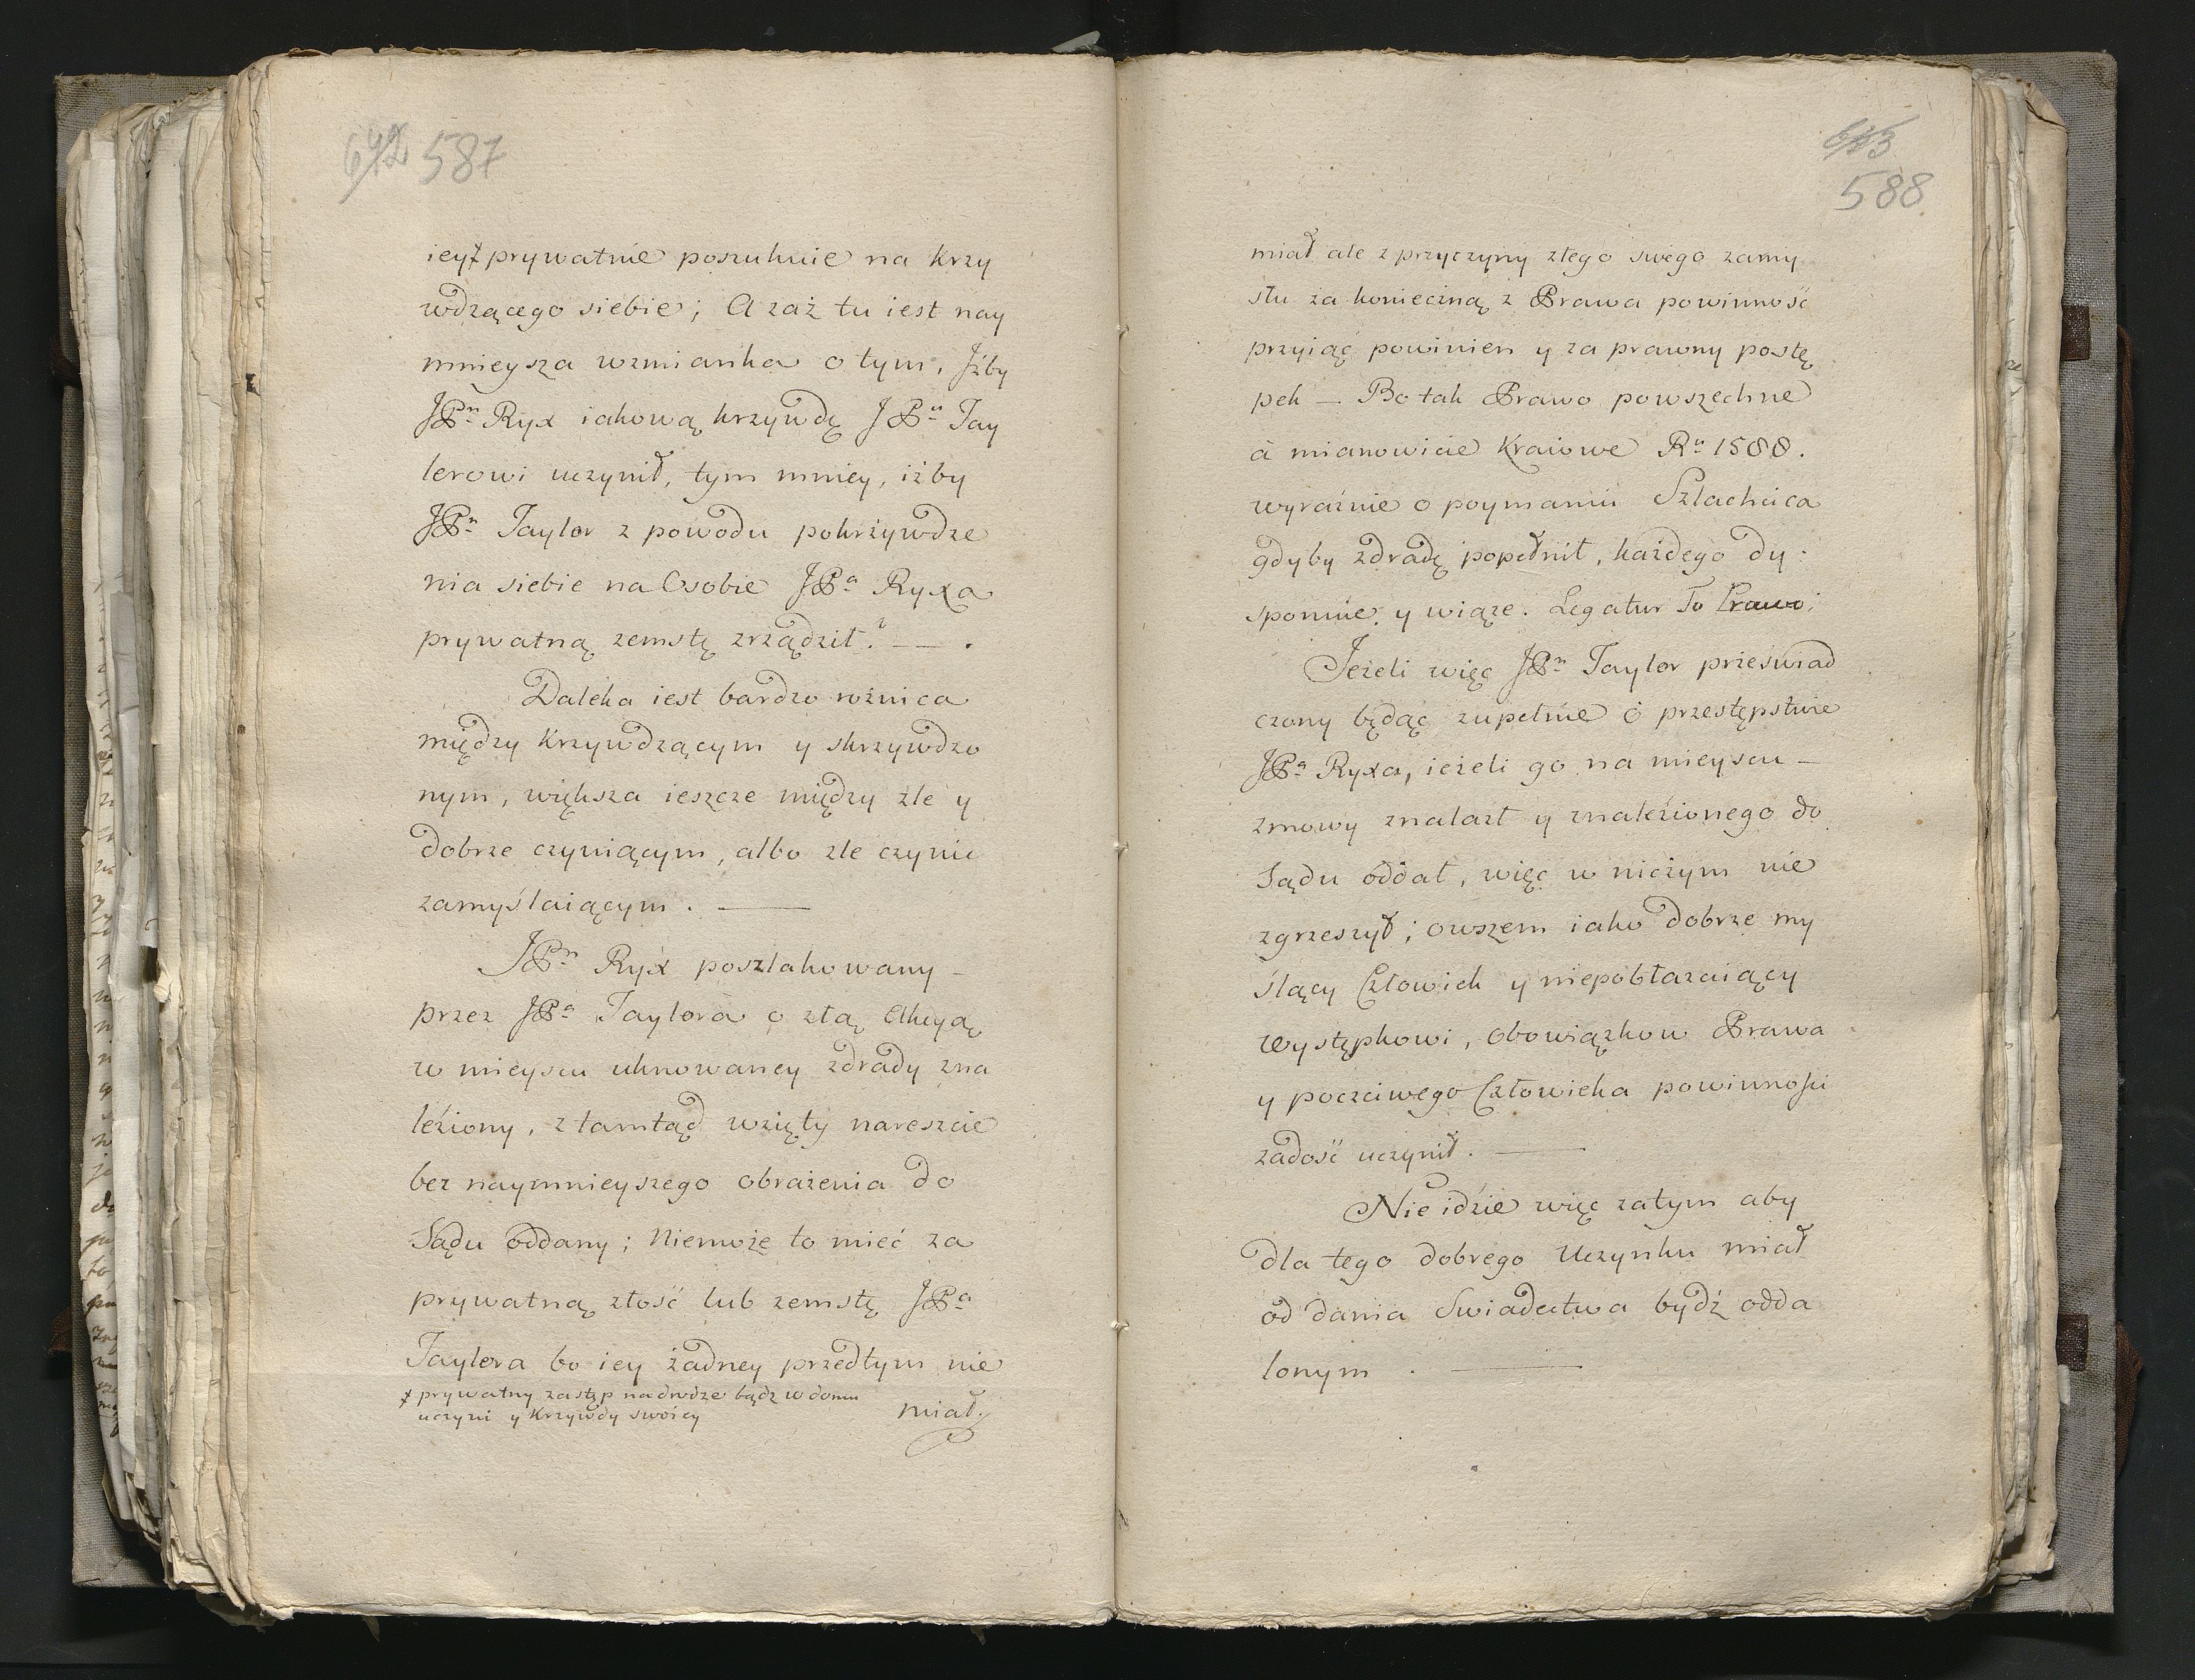 587
iey ꝉ prywatnie poszukuie na krzy
wdzącego siebie; A zaż tu iest nay
mnieysza wzmianka o tym, Jżby
JPn Ryx iakową krzywdę JPu Tay
lerowi uczynił, tym mniey, iżby
JPn Taylor z powodu pokrzywdze
nia siebie na Osobie JPa Ryxa
prywatną zemstę zrządził? — .
Daleka iest bardzo rożnica
między krzywdzącym y skrzywdzo
nym, większa ieszcze między źle y
dobrze czyniącym, albo zle czynic
zamyślaiącym. —
JPn Ryx poszlakowany –
przez JPa Taylora o złą Akcyą
w mieyscu uknowaney zdrady zna
leźiony, z tamtąd wzięty nareszcie
bez naymnieyszego obrażenia do
Sądu oddany; Niemoże to mieć za
prywatną złość lub zemstę JPa
Taylera bo iey żadney przedtym nie
ꝉ prywatny zastęp na drodze bądz w domu
uczyni y Krzywdy swoiey
miał.
588
miał ale z przyczyny złego swego zamy
słu za konieczną z Prawa powinność
przyiąć powinien y za prawny postę
pek — Bo tak Prawo powszechne
à mianowicie Kraiowe Ru 1588.
wyraźnie o poymaniu Szlachcica
gdyby zdradę popełnił, każdego dy:
sponuie, y wiąże. Legatur To Prawo;
Jeżeli więc JPn Taylor przeświad
czony będąc zupełnie o przestępstwie
JPa Ryxa, ieżeli go na mieyscu –
zmowy znalazł y znaleźionego do
Sądu oddał, więc w niczym nie
zgrzeszył; owszem iako dobrze my
ślący Człowiek y niepobłazaiący
występkowi, obowiązkow Prawa
y poczciwego Człowieka powinnosci
zadość uczynił. —
Nie idzie więc zatym aby
dla tego dobrego Uczynku miał
od dania Swiadectwa bydź odda
lonym . —